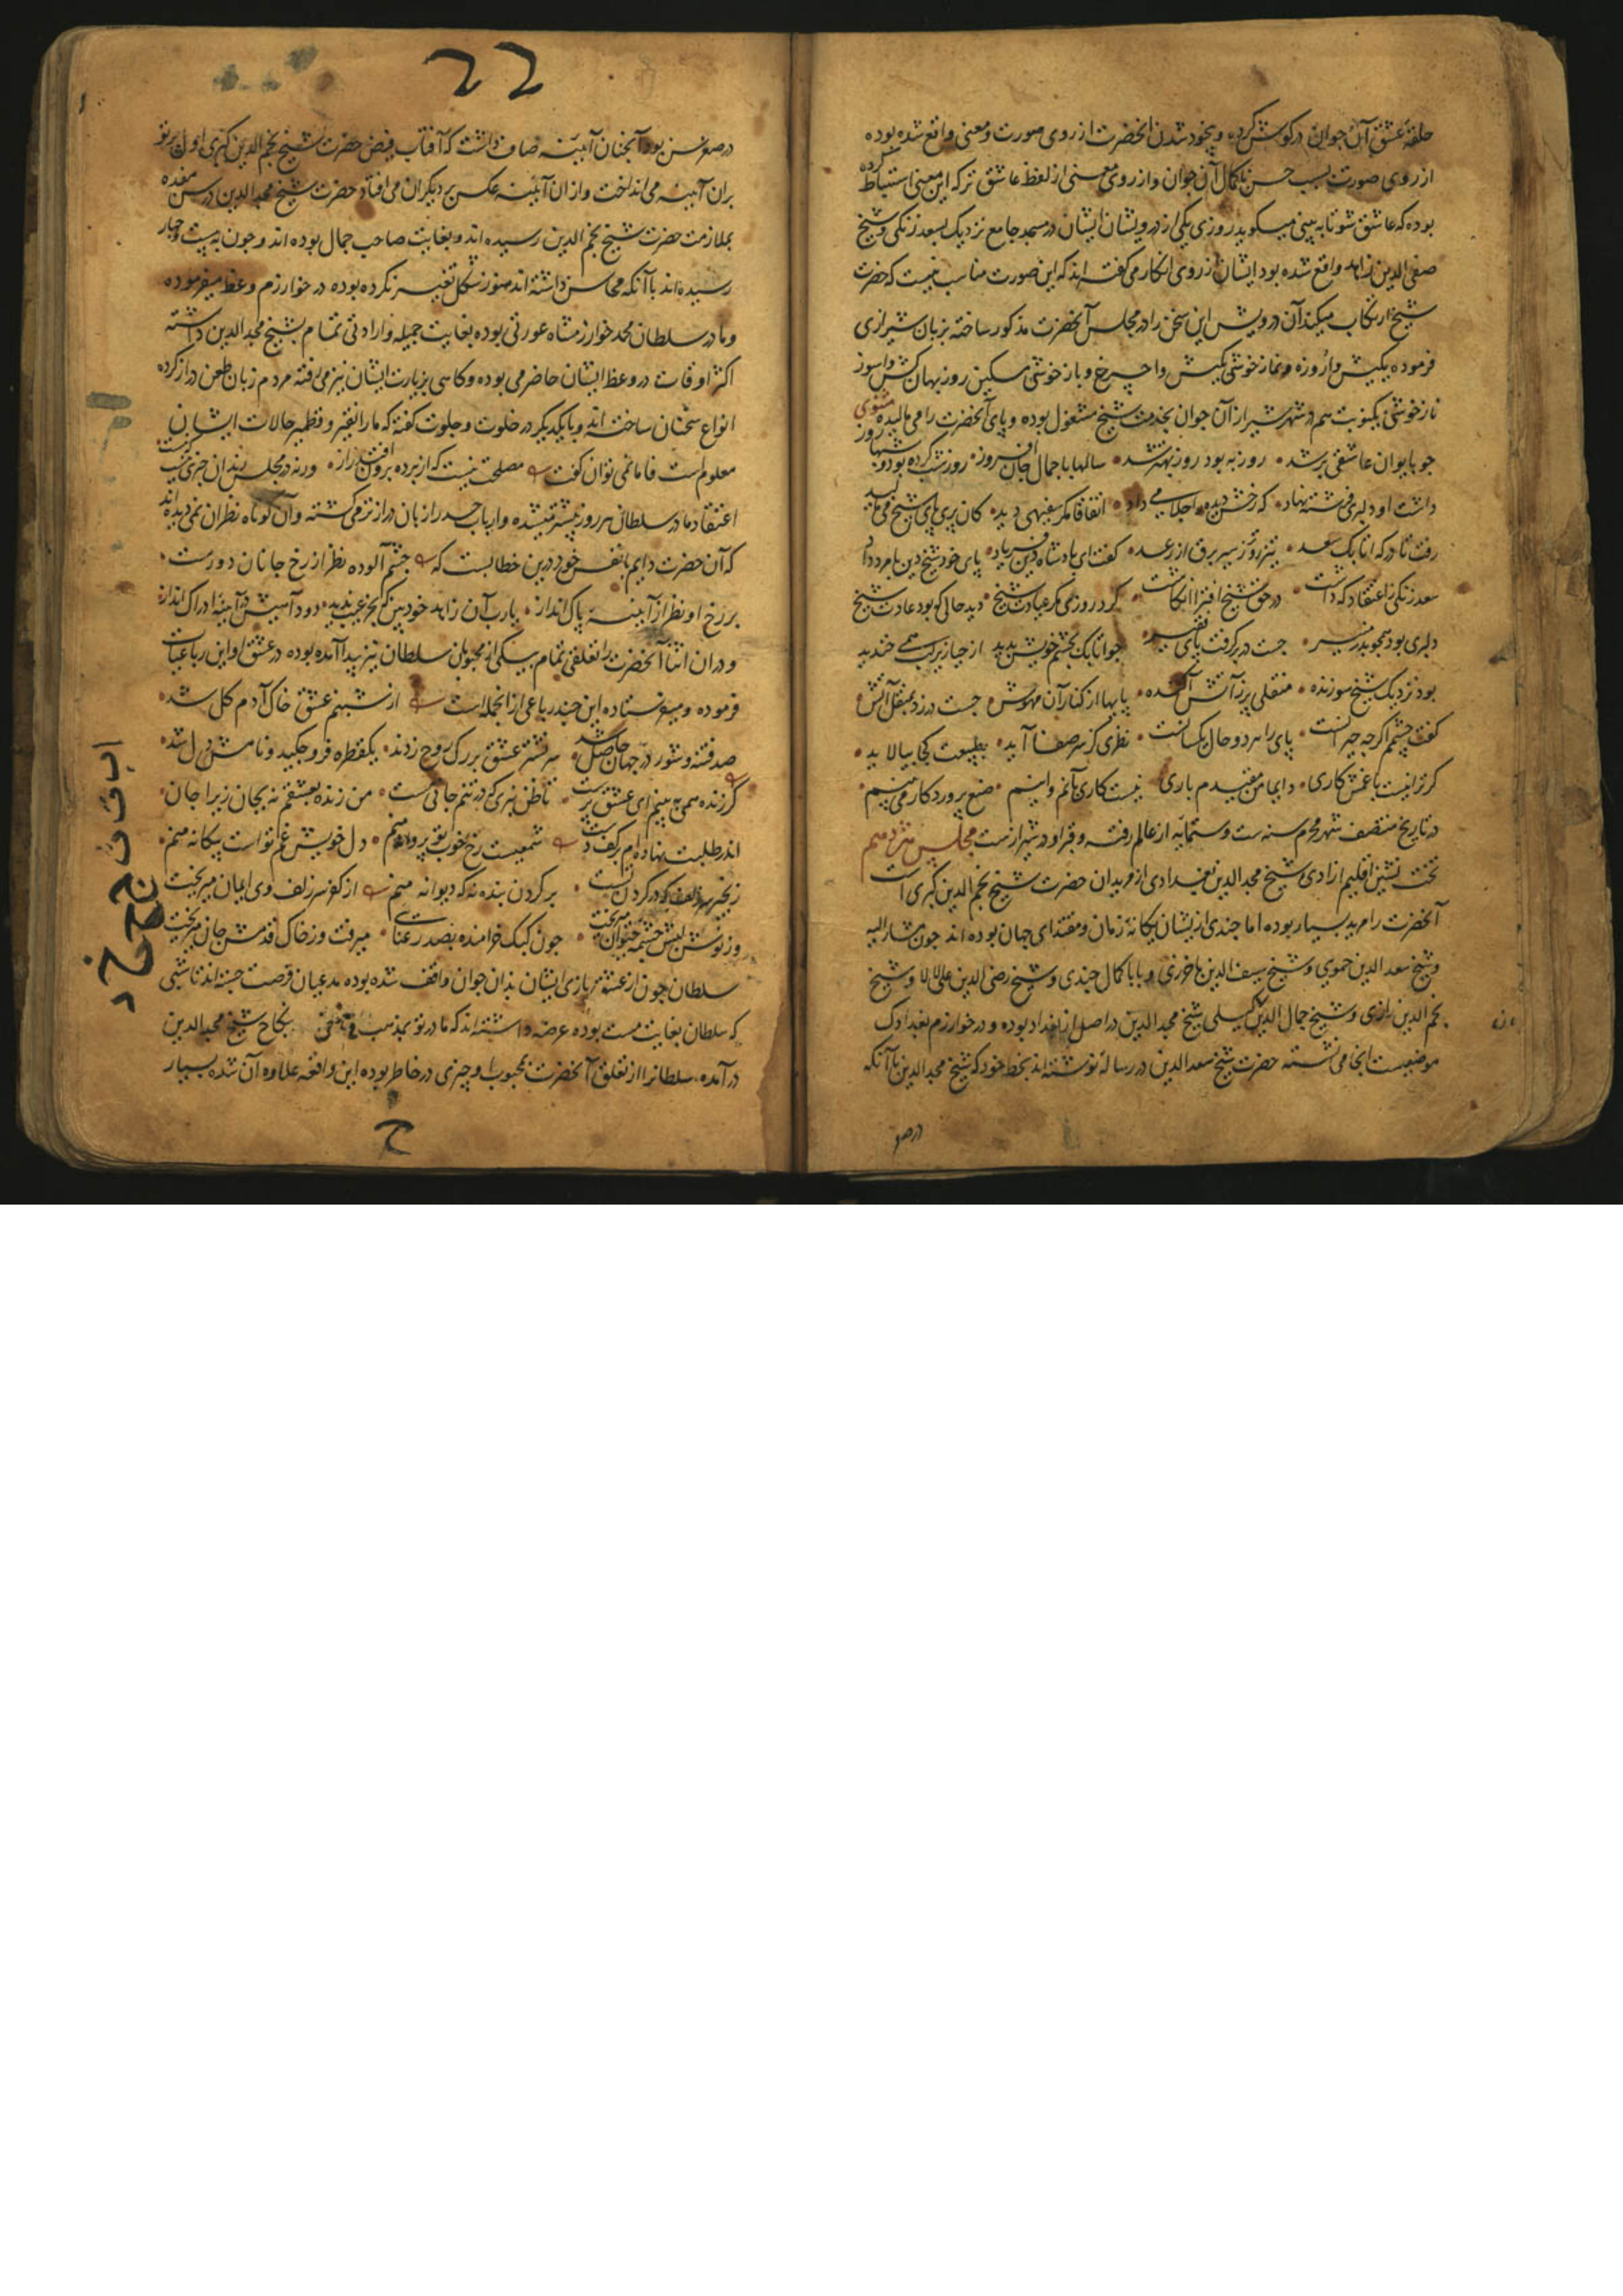 حلقهٔ عشق آن جوان در کوش کرده و بیخود شدن آنحضرت از روی صورت و معنی واقع شده بوده
از روی صورت بسبب حسن با کمال آن جوان و از روی معنی از لفظ عاشق ترکه این معنی استنباط کرده
بوده که عاشق شو تا به بینی میکوید روزی یکی از درویشان ایشان در مسجد جامع نزدیک بسعد زنکی و شیخ
صفی الدین زاهد واقع شده بود ایشان از روی انکار می کفته اند که این صورت مناسب نیست که حضرت
شیخ ارتکاب میکند آن درویش این سخن را در مجلس آنحضرت مذکور ساخته بزبان شیرازی
فرموده
ناز خوشی یکنوبت هم در شهر شیراز آن جوان بخدمت شیخ مشغول بوده و پای آنحضرت را می مالیده مثنوی
جو بابوان عاشقی بر شد • روز به بود روز بهتر شد • سالها با جمال جان افروز • روز شب کرده بود و شبها روز
داشت او دلبری فرشته نهاد • که رخش دیده را جلا می داد • اتفاقا مکر سفیهی دید • کان پری پای شیخ می مالید
رفت تا درکه اتابک سعد • تیزرو تر سیر برق از رعد • کفت ای پادشاه دین فریاد • پای خود شیخ دین بامرد داد
سعد زنکی ز اعتقاد که داشت • در حق شیخ افترا انکاشت • کرد روزی مکر عیادت شیخ • دید حالی که بود عادت شیخ
دلبری بود همجو بدر منیر • جست در بر کرفت پای فقیر • جو اتابک بچشم خویش بدید از حیا زیر لب همی خندید
بود نزدیک شیخ سوزنده • منقلی پر ز آتش آکنده • پایها از کنار آن مهوش • جست در زد بمنقل آتش
کفت چشمم اکر چه حیرانست • پای را هر دو حال یکسانست • نظری کز سر صفا آید • بطبیعت کجا بیالاید •
کر ترا نیست با غمش کاری • دایما من مقیدم باری نیست کاری بآنم و اینم • صنع پروردکار می بینم •
در تاریخ منتصف شهر محرم سنه ست و ستمایه از عالم رفته و قبر او در شیراز ست مجلس هژدهم
تخت نشین اقلیم آزادی شیخ مجد الدین بغدادی از مریدان حضرت شیخ نجم الدین کبری است
آنحضرت را مرید بسیار بوده اما جندی از یشان یکانهٔ زمان و مقتدای جهان بوده اند جون مشارالیه
و شیخ سعد الدین حموی و شیخ سیف الدین باخرزی و بابا کمال جندی و شیخ رضی الدین علی لالا و شیخ
نجم الدین رازی و شیخ جمال الدین کیلی شیخ مجد الدین در اصل از بغداد بوده و در خوارزم بغدادک
موضعیست آنجا می نشسته حضرت شیخ سعد الدین در رسالهٔ نوشته اند بخط خود که شیخ مجد الدین با آنکه
در صغر
22
در صغر سن بود آنجنان آیینهٔ صاف داشت که آفتاب فیض حضرت شیخ نجم الدین کبری اول پرتو
بران آیینه می انداخت و از ان آیینه عکس بر دیکران می افتاد حضرت شیخ مجد الدین در سن هفده
بملازمت حضرت شیخ نجم الدین رسیده اند و بغایت صاحب جمال بوده اند و جون به بیست و جهار
رسیده اند با آنکه محاسن داشته اند هنوز شکل تغییر نکرده بوده در خوارزم وعظ میفرموده
و مادر سلطان محمد خوارزمشاه عورتی بوده بغایت جمیله و ارادتی تمام بشیخ مجد الدین داشته
اکثر اوقات در وعظ ایشان حاضر می بوده و کاهی بزیارت ایشان نیز می رفته مردم زبان طعن دراز کرده
انواع سخنان ساخته اند و با یکدیکر در خلوت و جلوت کفته که ما را نقیر و قطمیر حالات ایشان
معلوم است فاما نمی توان کفت مصلحت نیست که از پرده برون افتد راز • ورنه در مجلس رندان خبری نیست که نیست
اعتقاد مادر سلطان هر روز بیشتر میشده و ارباب حسد را زبان دراز تر می کشته و آن کوتاه نظران نمی دیده اند
که آن حضرت دایم با نفس خود درین خطابست که جشم آلوده نظر از رخ جانان دورست •
بر رخ او نظر از آیینهٔ پاک انداز • یارب آن زاهد خودبین که بجز عیب ندید • دود آهیش در آیینهٔ ادراک انداز
و در ان اثنا آنحضرت را تعلقی تمام بیکی از محبوبان سلطان نیز پیدا آمده بوده در عشق او این رباعیات
فرموده و میفرستاده این جند رباعی از انجمله است از شبنم عشق خاک آدم کل شد •
صد فتنه و شور در جهان حاصل شد • سر نشتر عشق بر رک روح زدند • یکقطره فرو جکید و نامش دل شد •
کر زنده همی بینیم ای عشق پرست • تا ظن نبری که در تنم جانی هست • من زنده بعشقم نه بجان زیرا جان •
اندر طلبت نهاده ام بر کف دست شمعیست رخ خوب تو پروانه منم • دل خویش غم تو است بیکانه منم •
زنجیر سر زلف که در کردن تست • بر کردن بنده نه که دیوانه منم از کفر سر زلف وی ایمان میریخت
وز نوش لبش چشمهٔ حیوان میریخت • جون کبک خرامنده بصد رعنایی • میرفت و ز خاک قدمش جان میریخت
سلطان جون از عشق بازی ایشان بدان جوان واقف شده بوده مدعیان فرصت جسته اند تا شبی
که سلطان بغایت مست بوده عرضه داشته اند که مادر تو بمذهب بنکاح شیخ مجد الدین
در آمده سلطانرا از تعلق آنحضرت بمحبوب او جیزی در خاطر بوده این واقعه علاوه آن شده بسیار